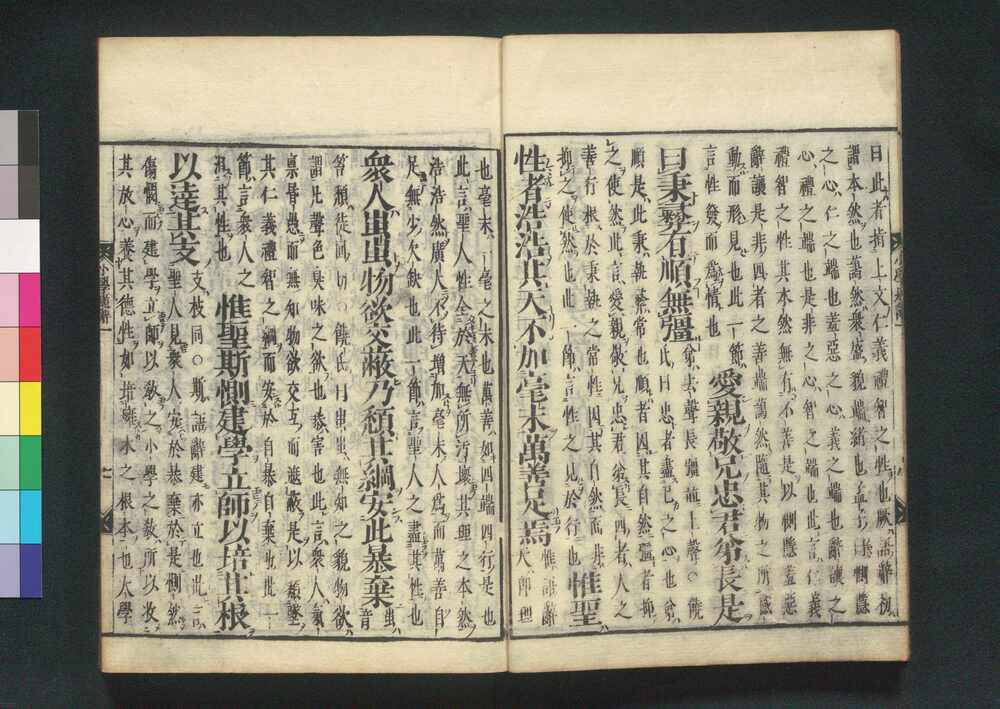 曰此者指上文仁義禮智之性也厥語辭初
謂本然也藹然衆盛貌端緒也孟子曰惻隱
之心仁之端也羞惡之心義之端也辭讓之
心禮之端也是非之心智之端也此言仁義
禮智之性其本然無有不善是以惻隱羞惡
辭讓是非四者之善端藹然隨其物之所感
動而形見也此一節
言性發而爲情也
愛親敬兄忠君弟長是
曰秉彝有順無彊
弟去聲長彊並上聲○饒
氏曰忠者盡己之心也弟
順是此秉執彝常也順者因其自然彊者挽
之使然此言愛親敬兄忠君弟長四者人之
善行根於秉執之常性因其自然而非
抑之使然也此一節言性之見於行也
惟聖
性者浩浩其天不加毫末萬善足焉
惟語辭
天即理
也毫末一毫之末也萬善如四端四行是也
此言聖人性全於天無所汚壞其理之本然
浩浩然廣大不待增加毫末人爲而萬善自
足無少欠缺也此一節言聖人之盡其性也
衆人蚩蚩物欲交蔽乃頹其綱安此暴棄
蚩音
笞頹徒回切○饒氏曰蚩蚩無知之貌物欲
謂凡聲色臭味之欲也害也此言衆人氣
稟昏愚而無知物欲交互而遮蔽是以頹墜
其仁義禮智之綱而安於自暴自棄也此一
節言衆人之
汨其性也
惟聖斯惻建學立師以培其根
以達其支
支枝同○斯語辭建亦立也此言
聖人見衆人安於暴棄於是惻然
傷憫而建學立師以敎之小學之敎所以收
其放心養其德性如培擁木之根本也大學
小學題辭